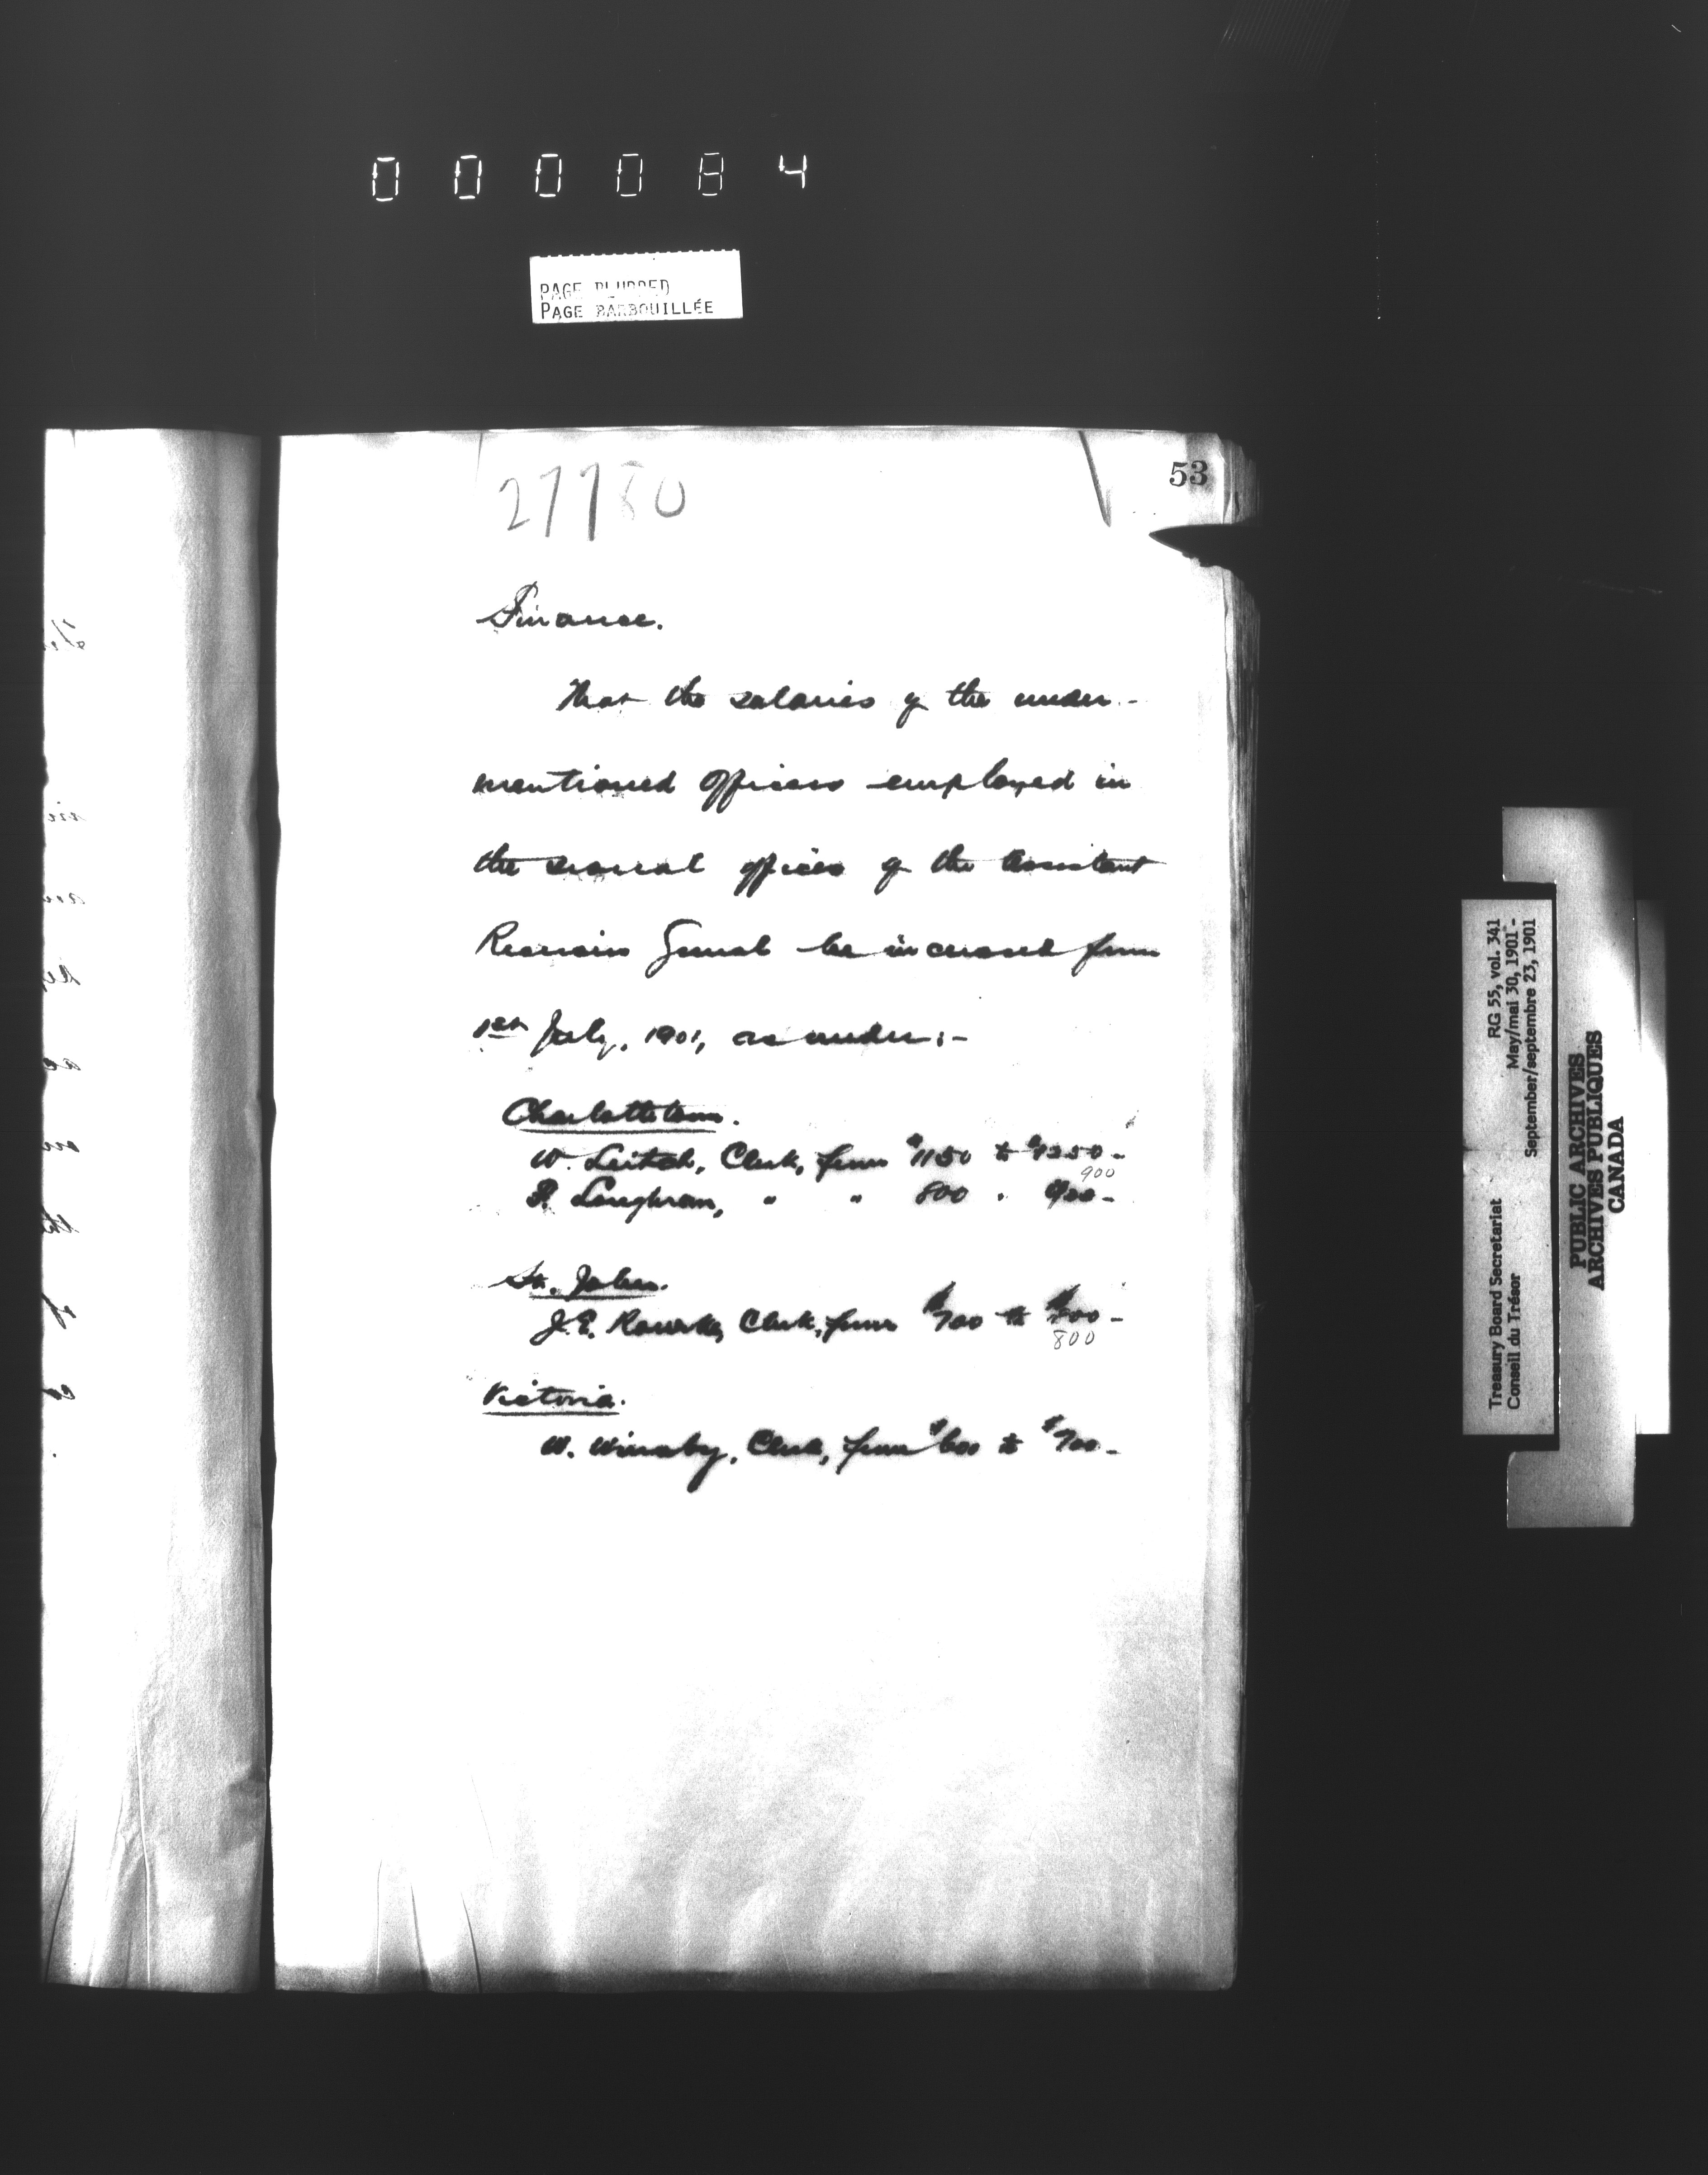 000084
PAGE BLURRED
PAGE BARBOUILLÉE
53
27780
Finance.
That the salaries of the under-
mentioned officers employed in
the several offices of the Assistant
Receiver General be increased from
1st July, 1901, as under:-
Charlottetown.
W. Leitch, Clerk, from $1150 to $1250-
900
P. Loughran, " " 800 " 900-
St. John.
J.E. Rourke, Clerk, from $700 to $800-
800
Victoria.
W. Winsby, Clerk, from $600 to $700-
Treasury Board Secretariat RG 55, vol. 341
Conseil du Trésor May/mai 30, 1901 -
September/septembre 23, 1901
PUBLIC ARCHIVES
ARCHIVES PUBLIQUES
CANADA